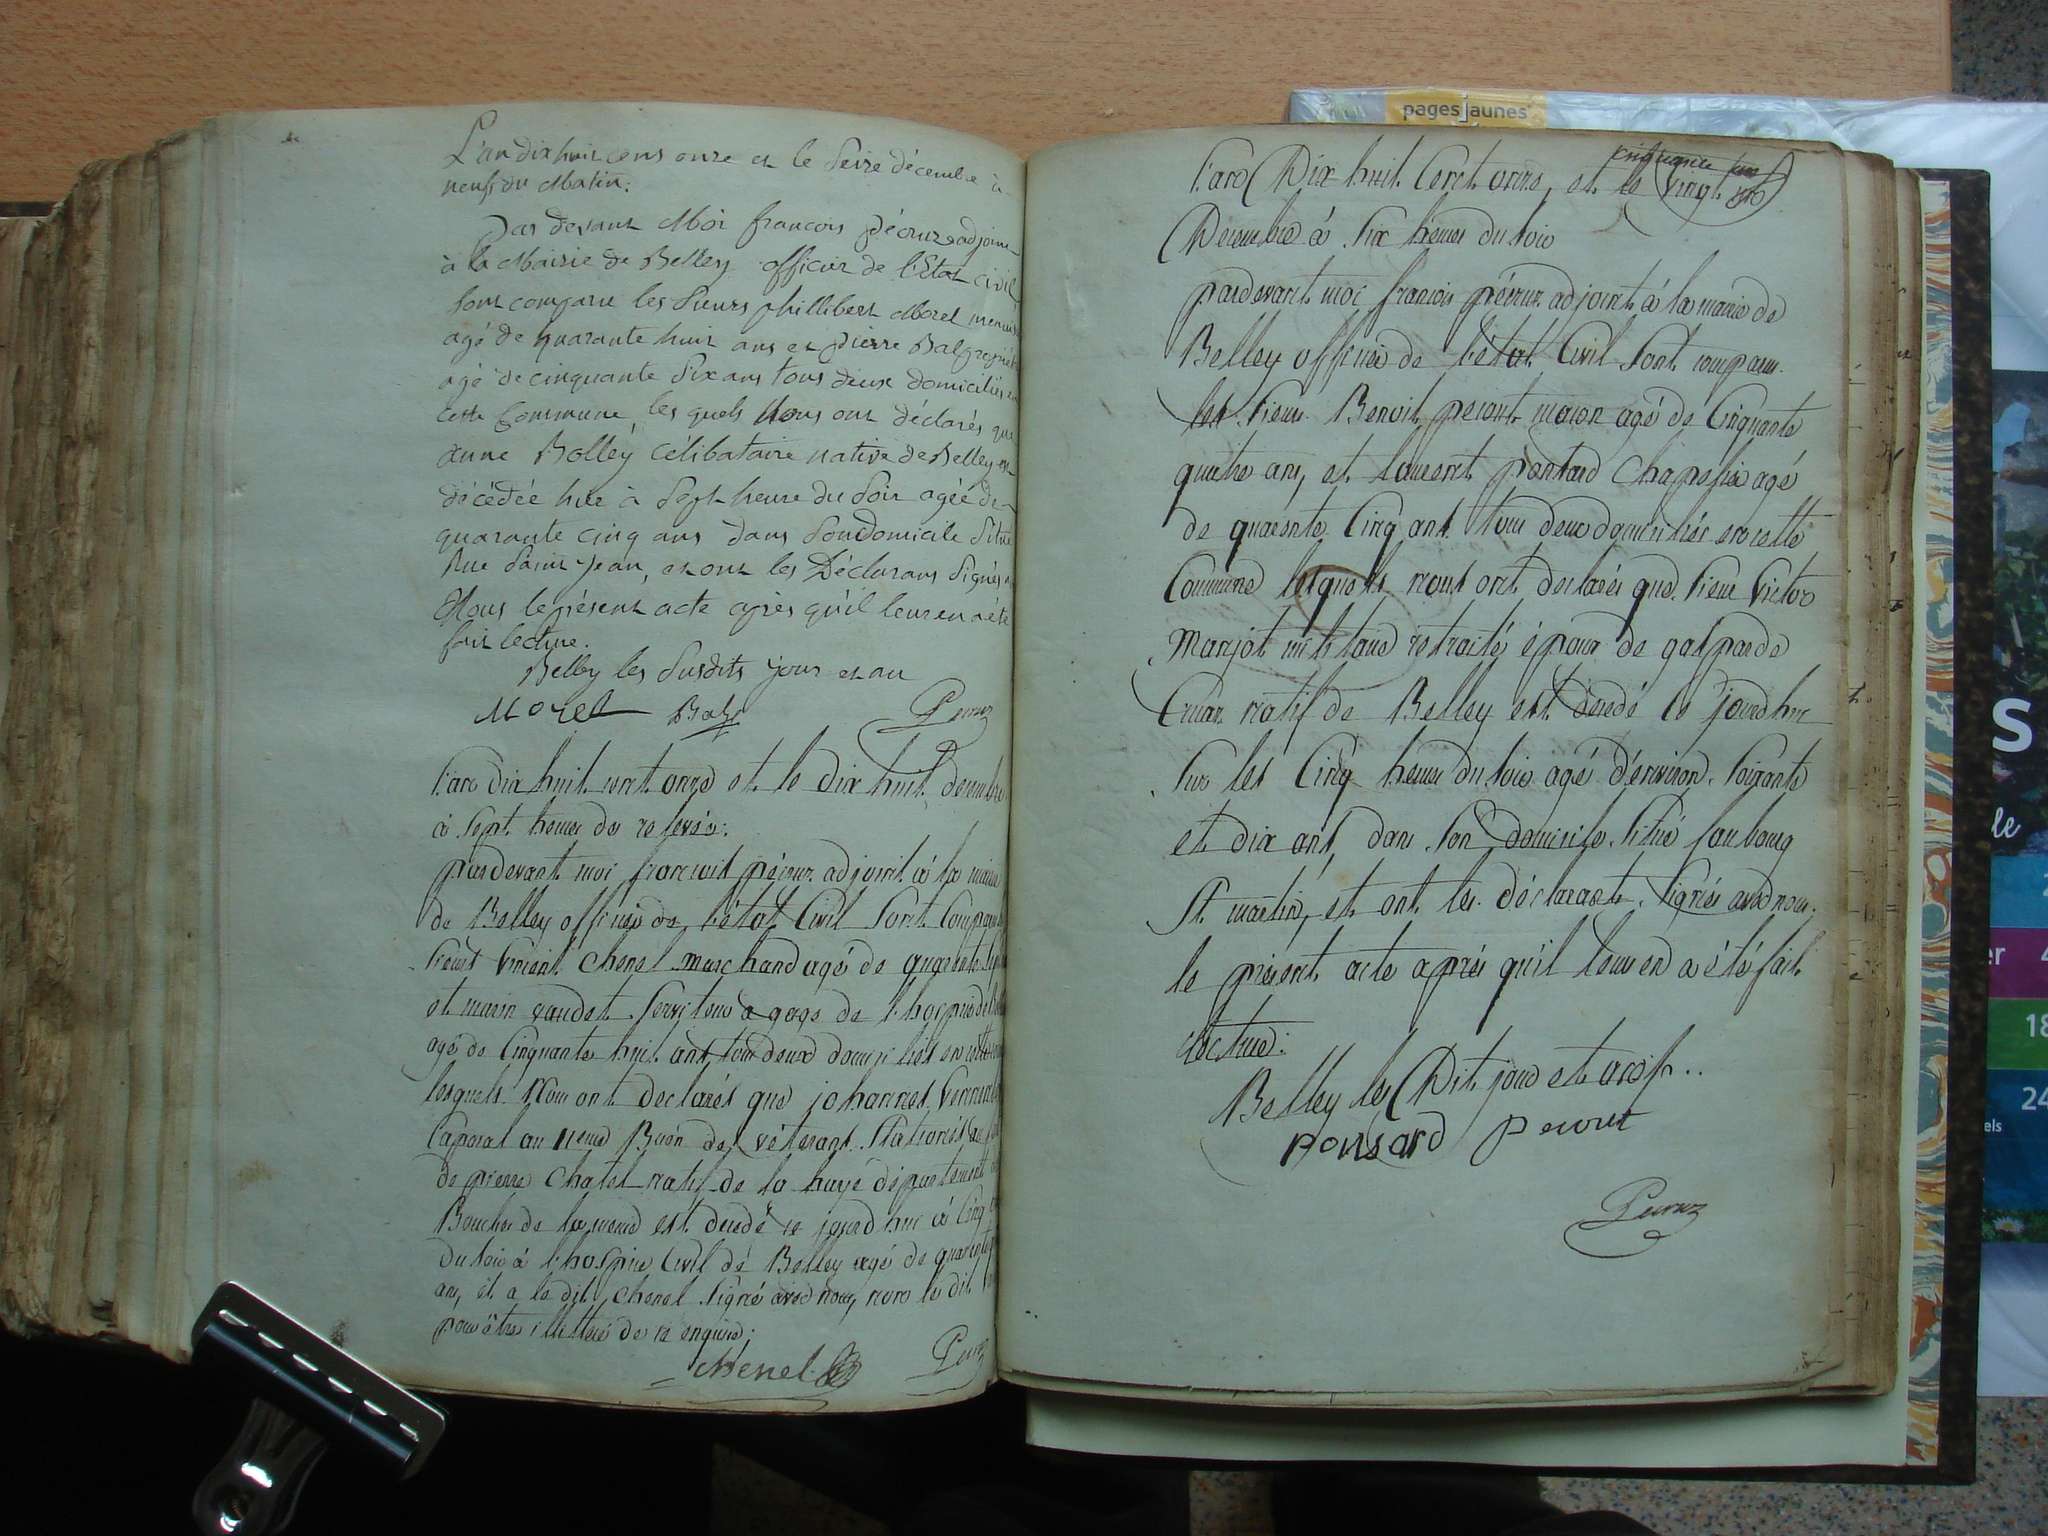 L'an dix huit cens onze et le Seize décembre à
neuf du Matin.
Par devant Moi francois Pécruz adjoint
à la Mairie de Belley officier de l'Etat civil
sont comparu les Sieurs phillibert Morel menuisi
agé de quarante huit ans et pierre Bal
agé de cinquante Six ans tous deux domiciliés en
cette Commune, les quels Nous ont déclarés que
anne Bolley célibataire native de Belley est
décédée hier à Sept heure du Soir agée de
quarante cinq ans dans Son domicile Situé
Rue Saint Jean, et ont les Déclarans Signés a
Nous le présent acte après qu'il leur en a été
fait lecture.
Belley les Susdits jour et an
Morel Bal
L'an dix huit cent onze et le dix huit décembre
à Sept heures de relevée.
pardevant moi francois pécruz adjoint à la mairie
de Belley officier de l'état Civil Sont Compa
Sieurs vincent Chenel marchand agé de quarante
et marin vaudet Serviteur a gage de l'hospice
agé de Cinquante huit ans tous deux domiciliés en cette
lesquels Nous ont declarés que johannes
Caporal au 11eme Bu͠on de vétérans Stationés au
de pierre Chatel natif de la haye département
Bouches de la meuse est decedé ce jourd'hui à Cinq
du Soir à l'hospice Civil de Belley agé de quarante
ans, et a le dit Chenel Signé avec nous, non le dit
pour être illitteré de ce enquis;
Chenel
pagesjaunes
cinquante
L'an Dix huit Cent onze, et le vingt
Décembre à Six heures du Soir
pardevant moi francois pécruz adjoint à la mairie de
Belley officier de l'état Civil Sont comparu
les Sieurs Benoit perout macon agé de Cinquante
quatre ans, et laurent ponsard Chapelier agé
de quarente Cinq ans tous deux domiciliés en cette
Commune lesquels nous ont declarés que Sieur Victor
Marjot militaire retraité époux de gasparde
natif de Belley est décédé ce jourd'hui
Sur les Cinq heures du Soir agé d'environ Soixante
et dix ans dans Son domicile Situé faubourg
St. martin, et ont les déclarants Signés avec nous
le présent acte après qu'il leur en a été fait
lecture.
Belley les Dit jour et an
ponsard perout